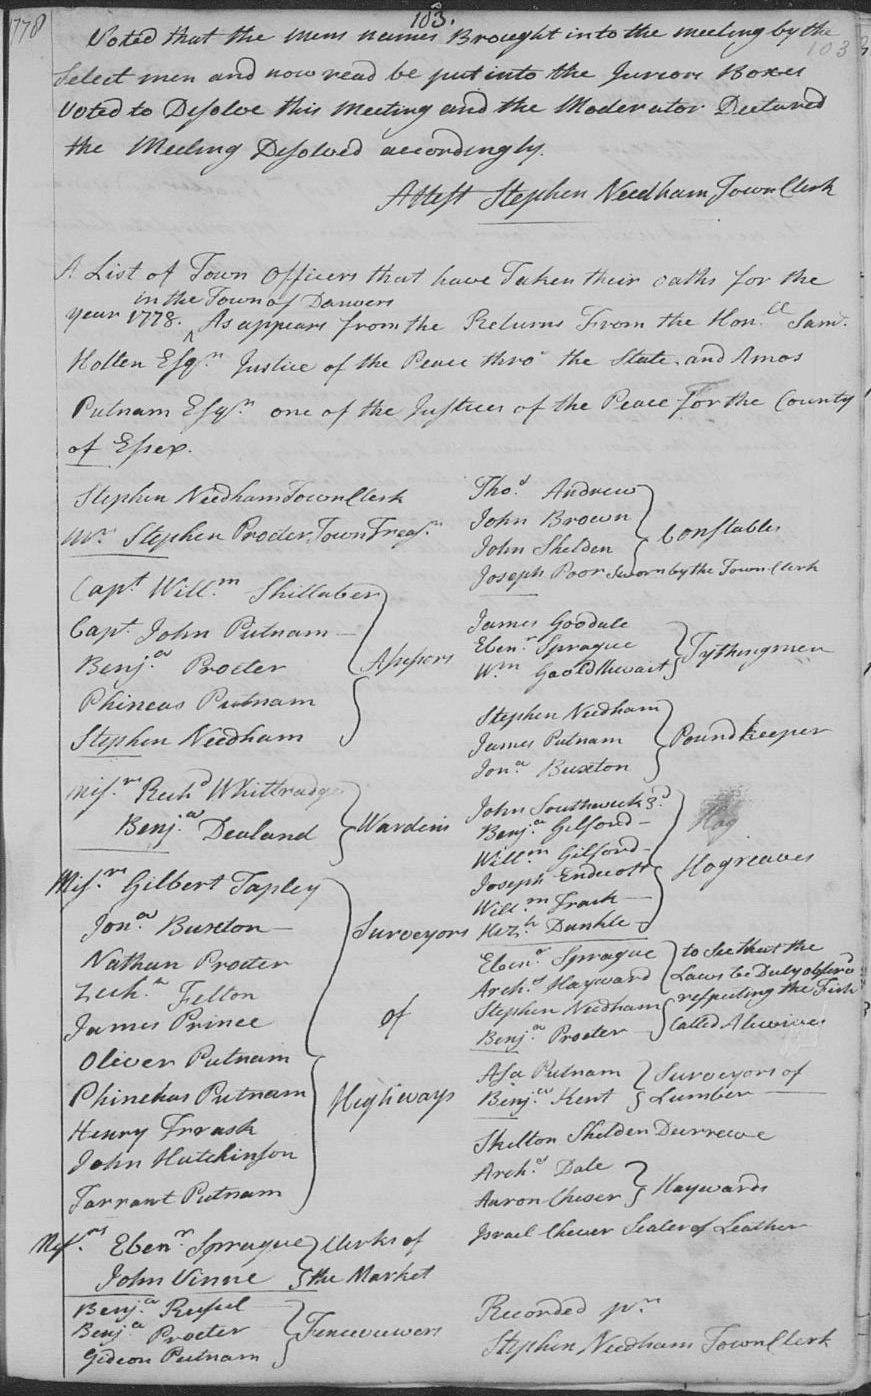 1778
103.
103
Voted that the mens names Brought into the meeting by the
Select men and now read be put into the Jurors Boxes
Voted to Desolve this Meeting and the Moderator Declared
the Meeting Desolved accordingly.
Attest Stephen Needham Town Clerk
A List of Town Officers that have Taken their oaths for the
in the Town of Danvers
year 1778. ^ As appears from the Returns From the Hon.le Sam.l
Holten Esq.r Justice of the Peace thro' the State and Amos
Putnam Esq.r one of the Justices of the Peace For the County
of Essex.
Stephen Needham Town Clerk
Mr. Stephen Procter, Town Treas.r
Capt Will.m Shillaber
Capt. John Putnam
Benj.a Procter
Phineas Putnam
Stephen Needham
Assessors
Mess.rs Rich.d Whittradge
Benj.a Dealand
Wardens
Mess.rs Gilbert Tapley
Jon.a Buxton
Nathan Procter
Zech.a Felton
James Prince
Oliver Putnam
Phinehas Putnam
Henry Trask
John Hutchinson
Tarrant Putnam
Surveyors
of
Highways
Mess.rs Eben.r Sprague
John Vinne
Clerks of
the Market
Benj.a Russel
Benj.a Procter
Gideon Putnam
Fencevewers
Tho.s Andrew
John Brown
John Shelden
Joseph Poor Sworn by the Town Clerk
Constables
James Goodale
Eben.r Sprague
W.m Goold thwait
Tythingmen
Stephen Needham
James Putnam
Jon.a Buxton
Poundkeeper
John Southwick 3.d
Benj.a Gilford
Will.m Gilford
Joseph Endicott
Will.m Trask
Hez.h Dunkle
Hog
Hogreaves
Eben.r Sprague
Arch.s Hayward
Stephen Needham
Benj.a Procter
to See that the
Laws be Duly observd
respecting the Fish
Called Alewives
Asa Putnam
Benj.a Kent
Surveyors of
Lumber
Skelton Shelden Deerreeve
Arch.s Dale
Aaron Cheever
Haywards
Israel Cheever Sealer of Leather
Recorded p.r
Stephen Needham Town Clerk